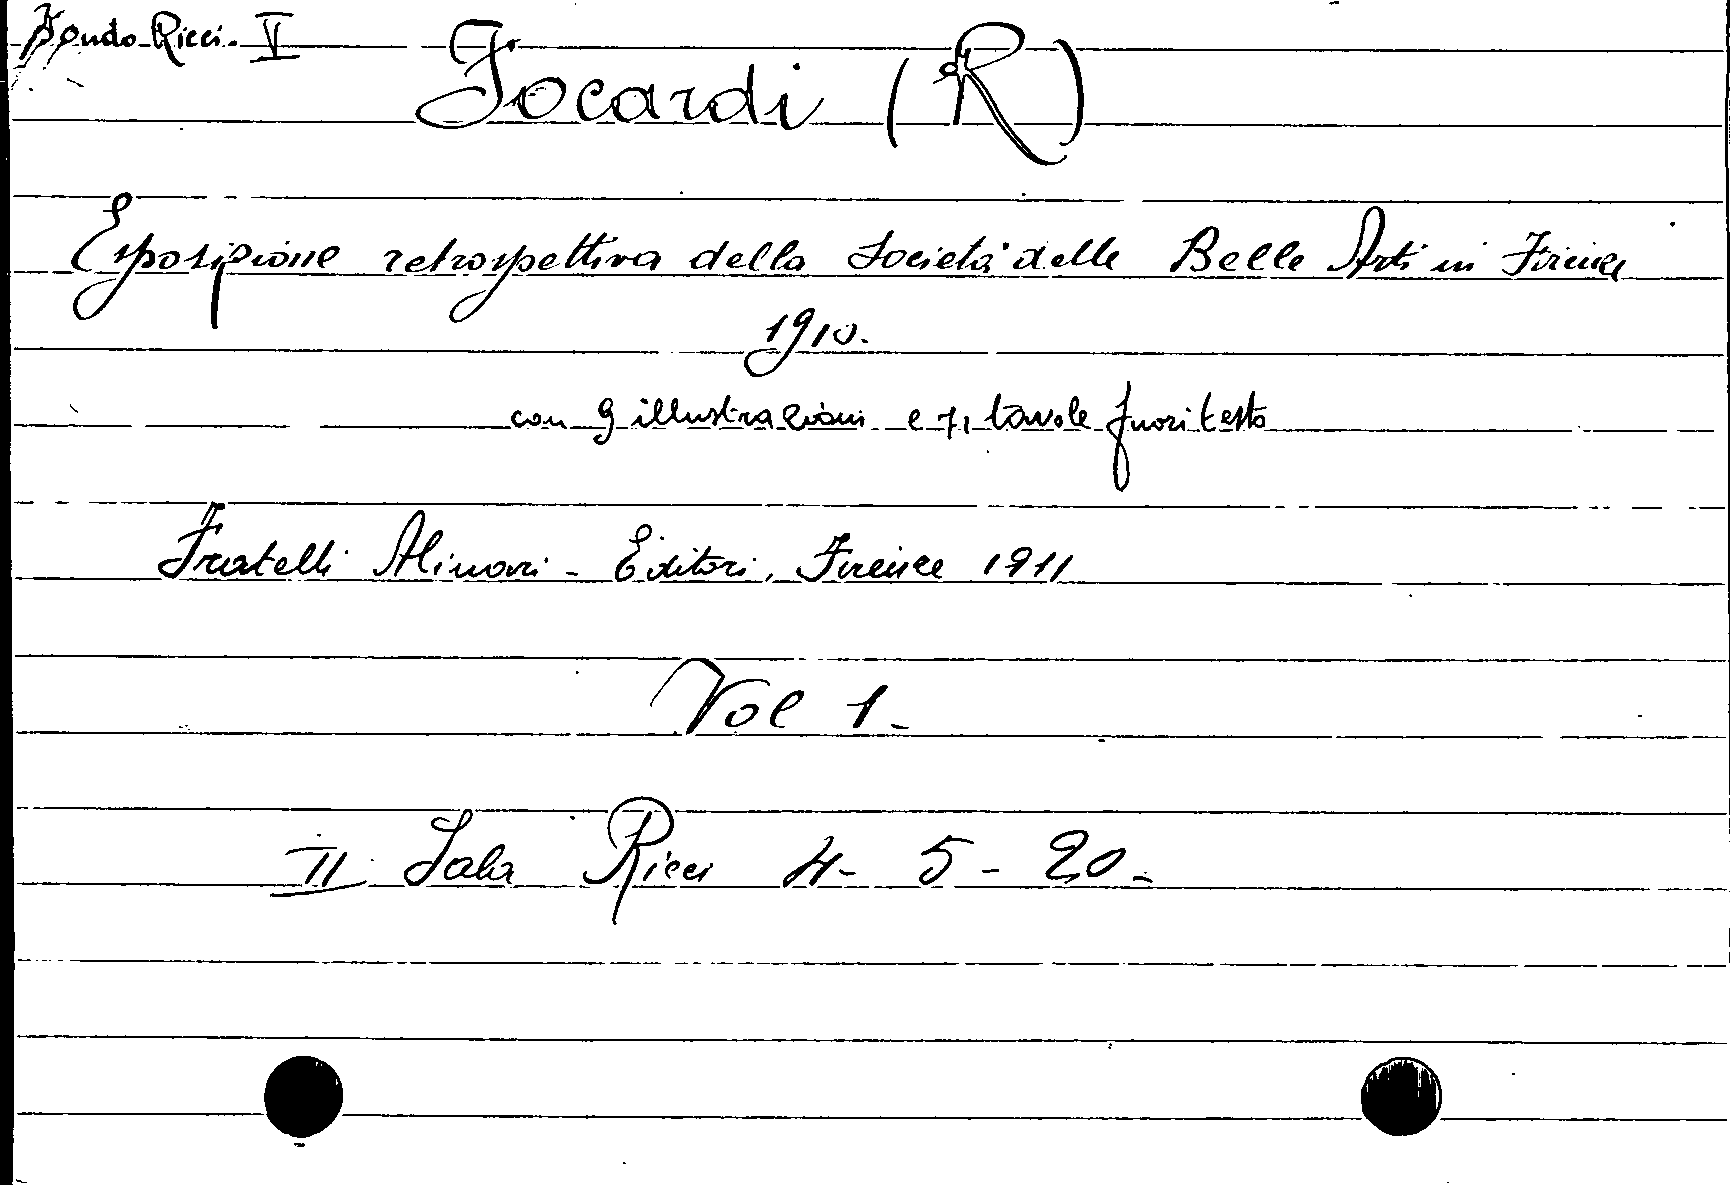 Fondo Ricci. V
Focardi (R)
Esposizione retrospettiva della Società delle Belle Arti in Firenze
1910.
con 9 illustrazioni e 71 tavole fuori testo
Fratelli Alinari - Editori, Firenze 1911
Vol 1.
II Sala Ricci 4 - 5 - 20 -